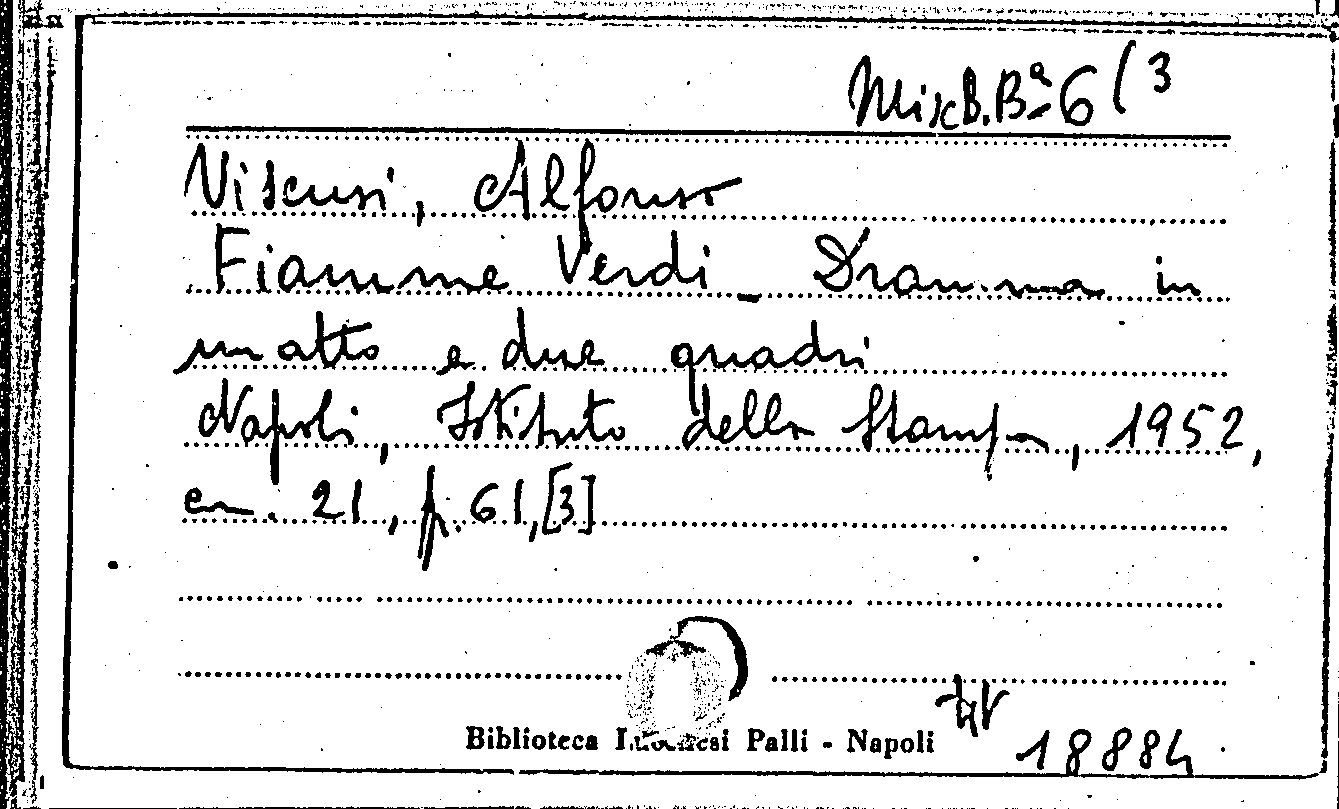 Misc. B. Bª 6 (3
Viscusi, Alfonso
Fiamme Verdi - Dramma in
un atto e due quadri
Napoli, Istituto della Stampa, 1952,
cm. 21, p. 61, [3]
Biblioteca Lucchesi Palli - Napoli
18884